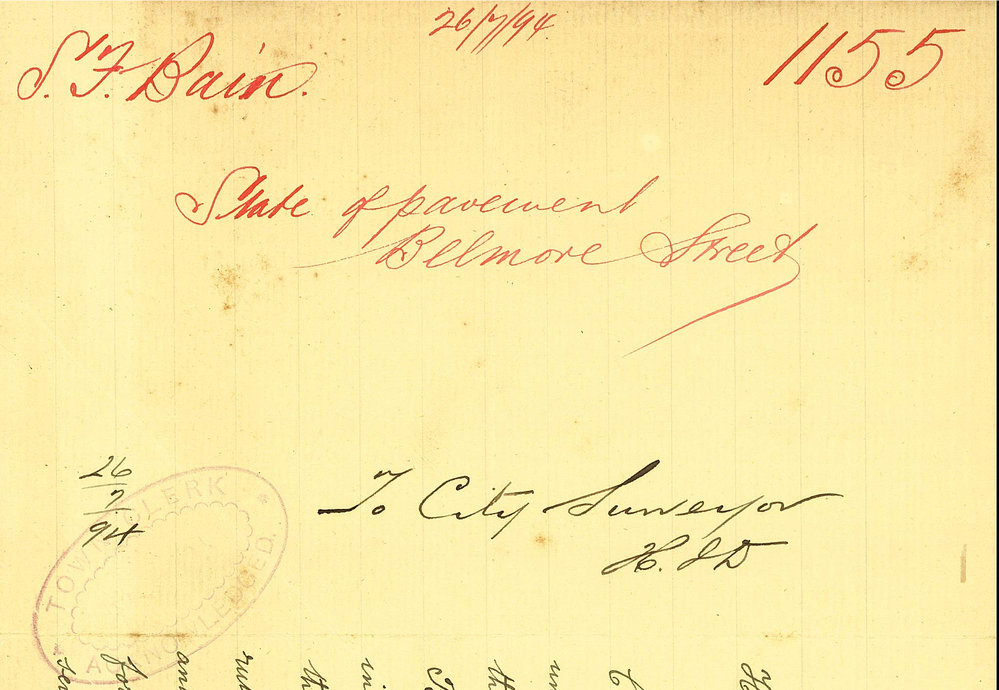 26/7/94
S. F. Bain.
1155
State of pavement
Belmore Street
26
7
94
To City Surveyor
H. J D
TOWN CLERK
ACKNOWLEDGED.
th
in
th